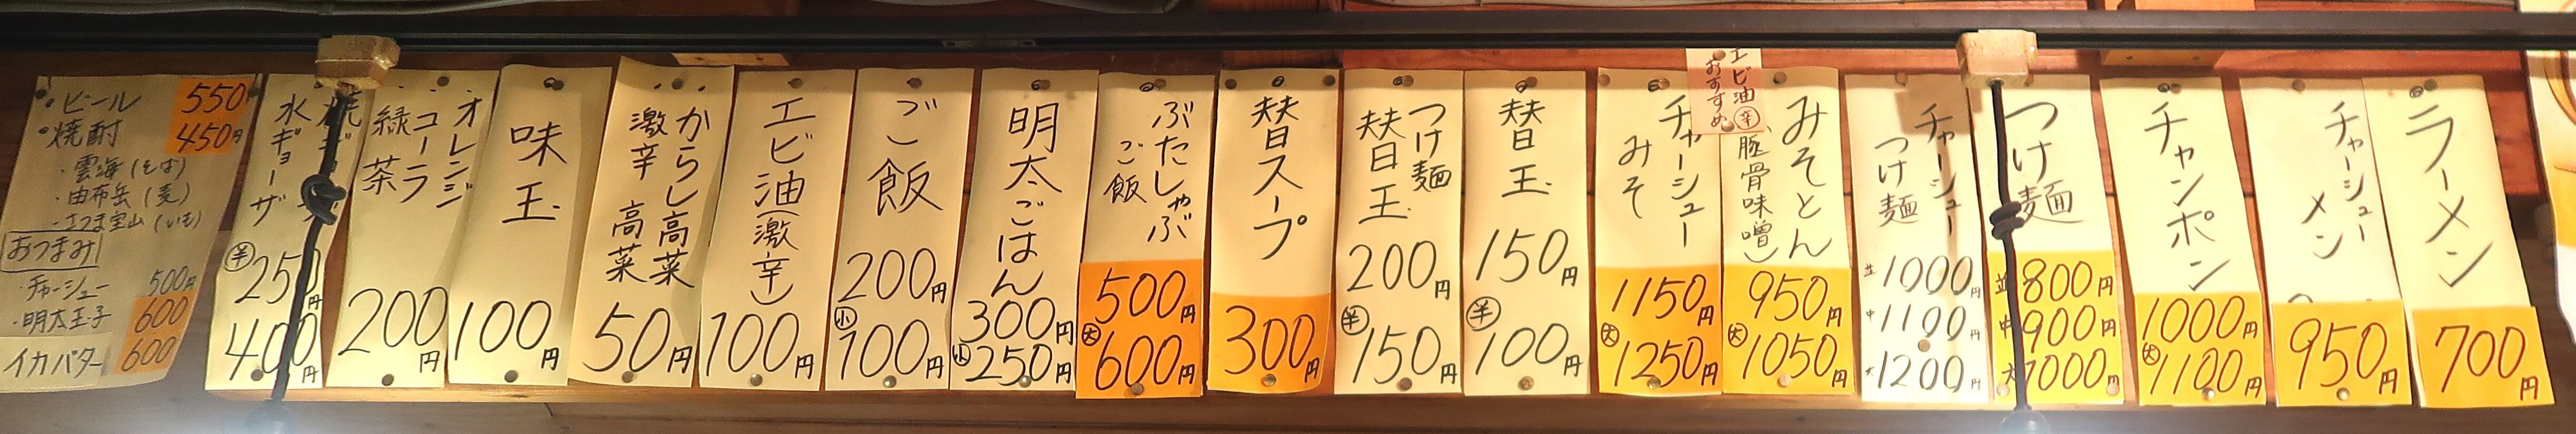 ラーメン
700円
チャーシュー
メン
950円
チャンポン
1000円
大1100円
つけ麺
並800円
中900円
大1000円
チャーシュー
つけ麺
並1000円
中1100円
大1200円
エビ油辛
おすすめ
みそとん
(豚骨味噌)
950円
大1050円
チャーシュー
みそ
1150円
大1250円
替玉
150円
半100円
つけ麺
替玉
200円
半150円
替スープ
300円
ぶたしゃぶ
ご飯
500円
大600円
明太ごはん
300円
小250円
ご飯
200円
小100円
エビ油(激辛)
100円
からし高菜
激辛 高菜
50円
味玉
100円
オレンジ
コーラ
緑茶
200円
水ギョーザ
半250円
400円
・ビール 550
・焼酎 450円
・雲海(そば)
・由布岳(麦)
・さつま宝山(いも)
おつまみ
・チャーシュー 500円
・明太玉子 600
イカバター 600